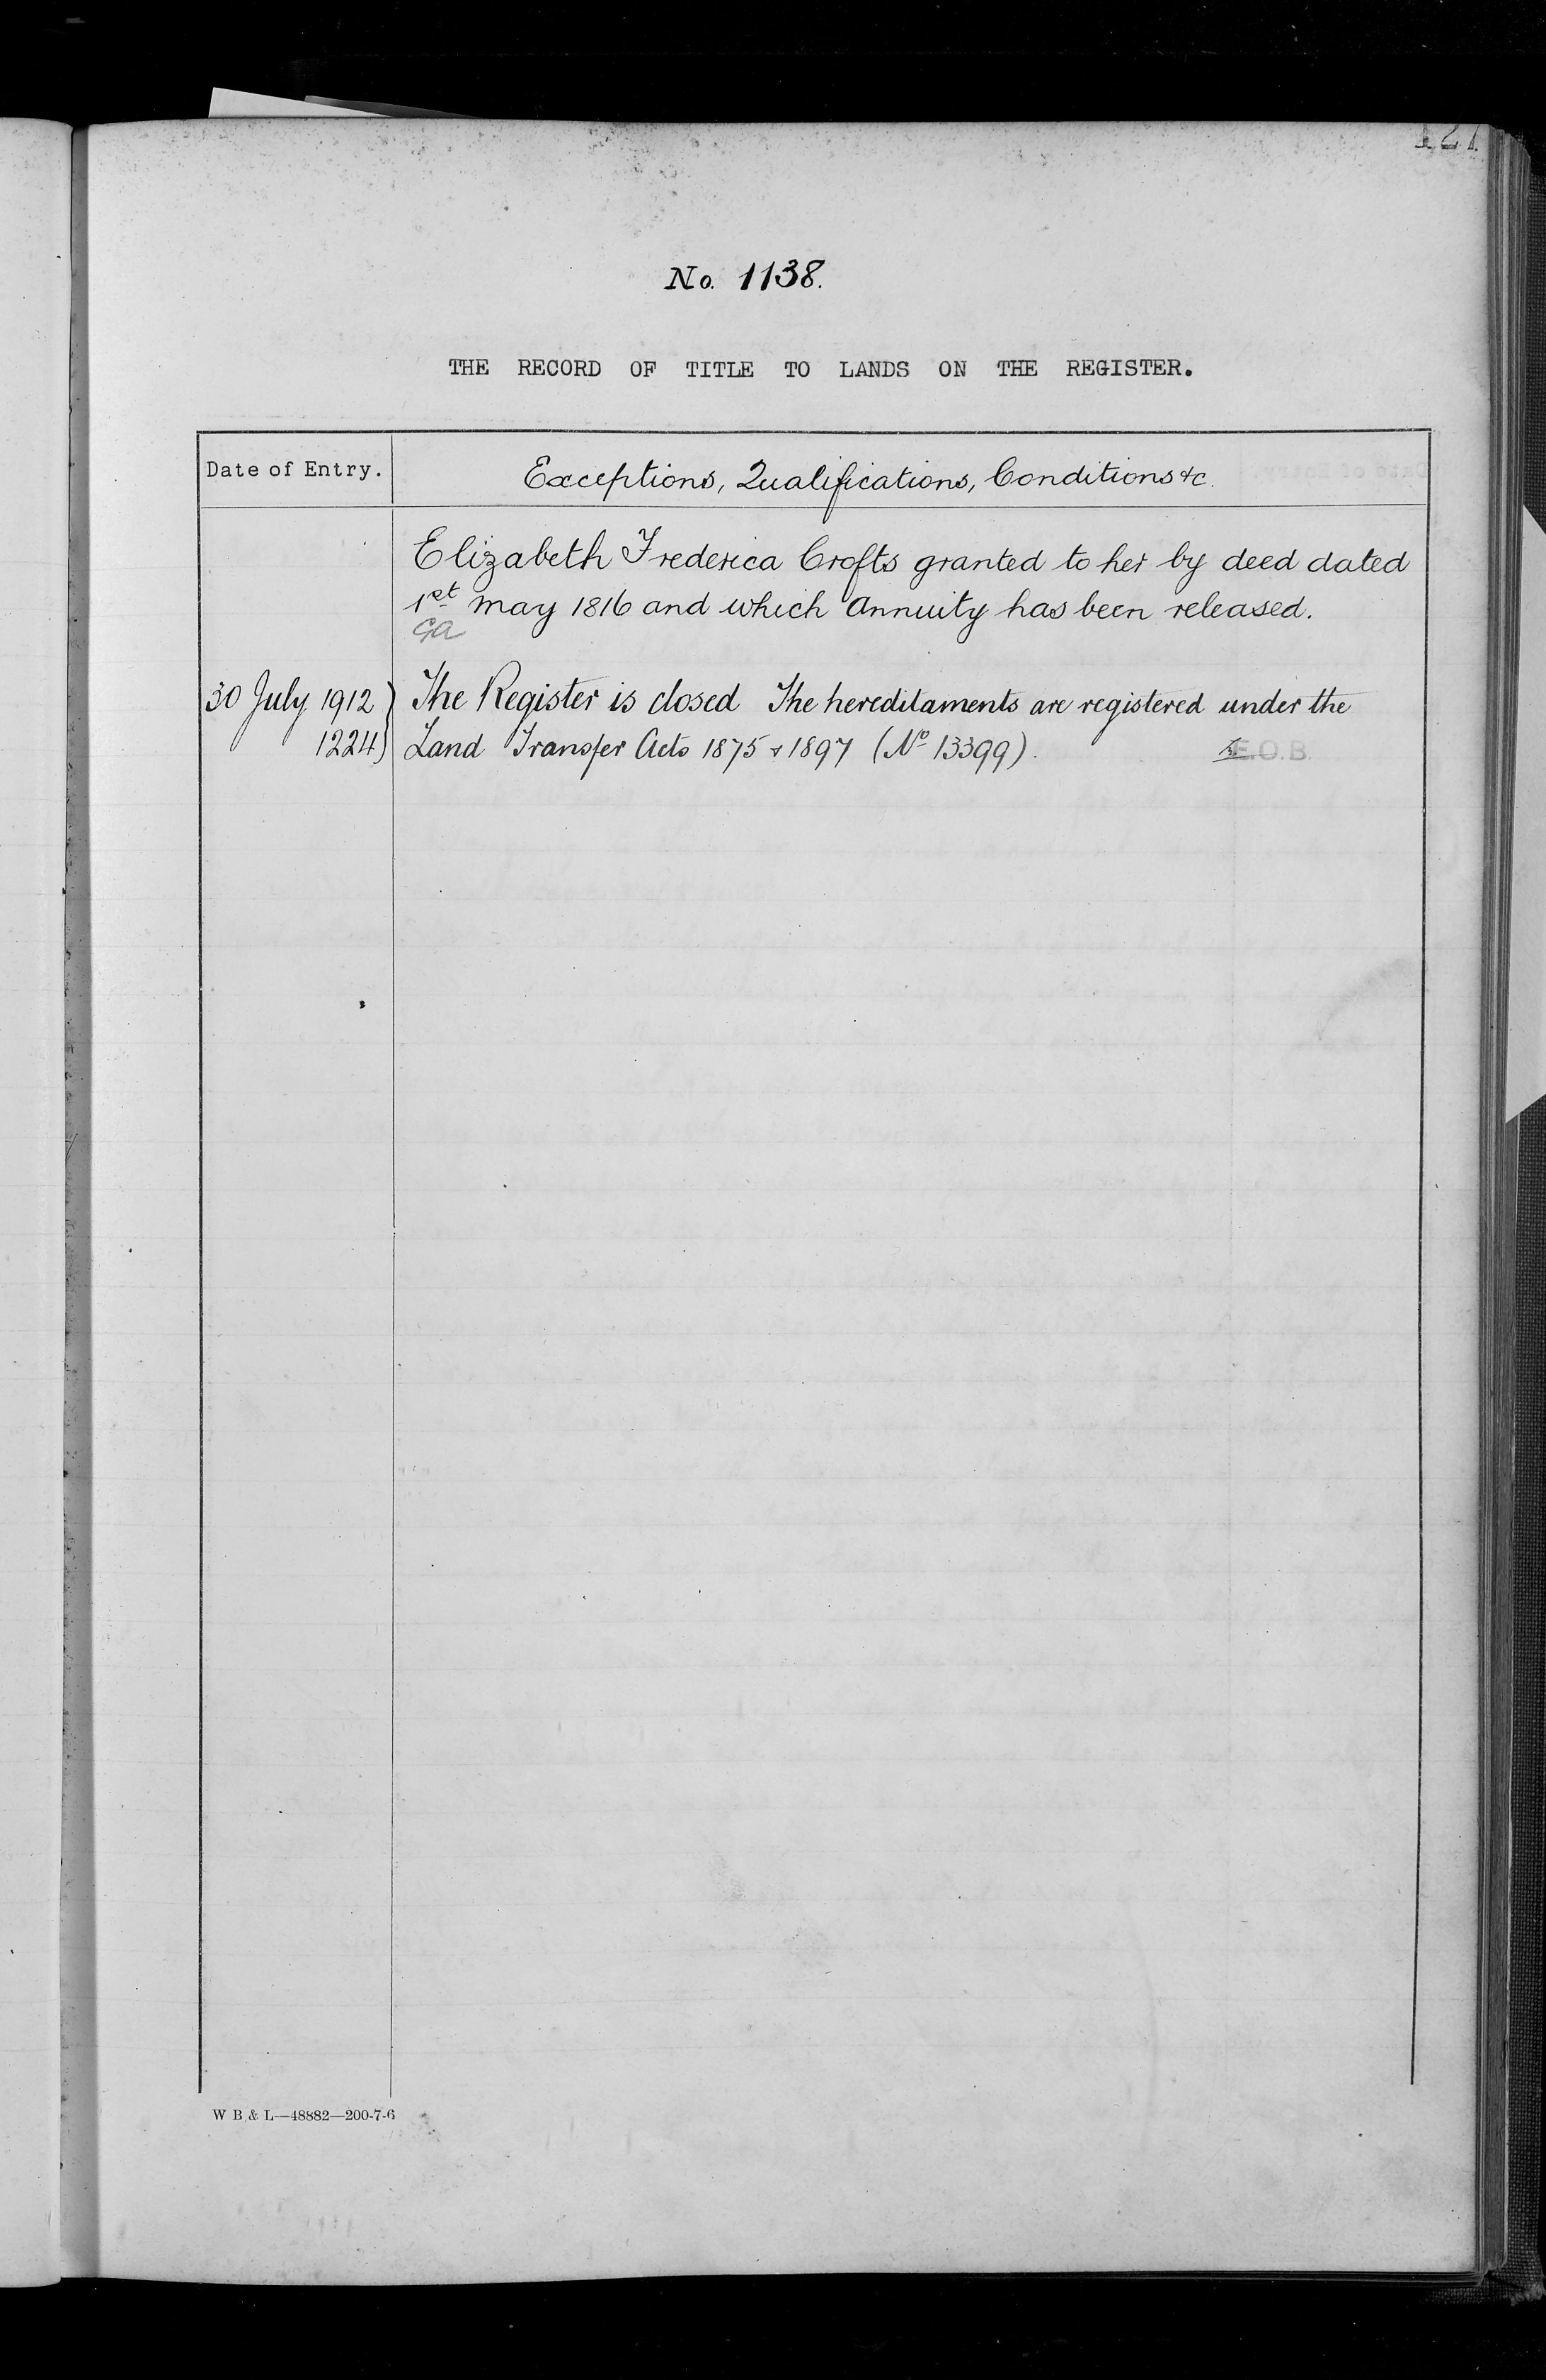 121
No. 1138.
THE RECORD OF TITLE TO LANDS ON THE REGISTER.
Date of Entry.
Exceptions, Qualifications, Conditions &c.
Elizabeth Frederica Crofts granted to her by deed dated
1st May 1816 and which Annuity has been released.
GA
30 July 1912 } The Register is closed The hereditaments are registered under the
1224 } Land Transfer Acts 1875 & 1897 (No 13399). E.O.B.
W B & L—48882—200-7-6